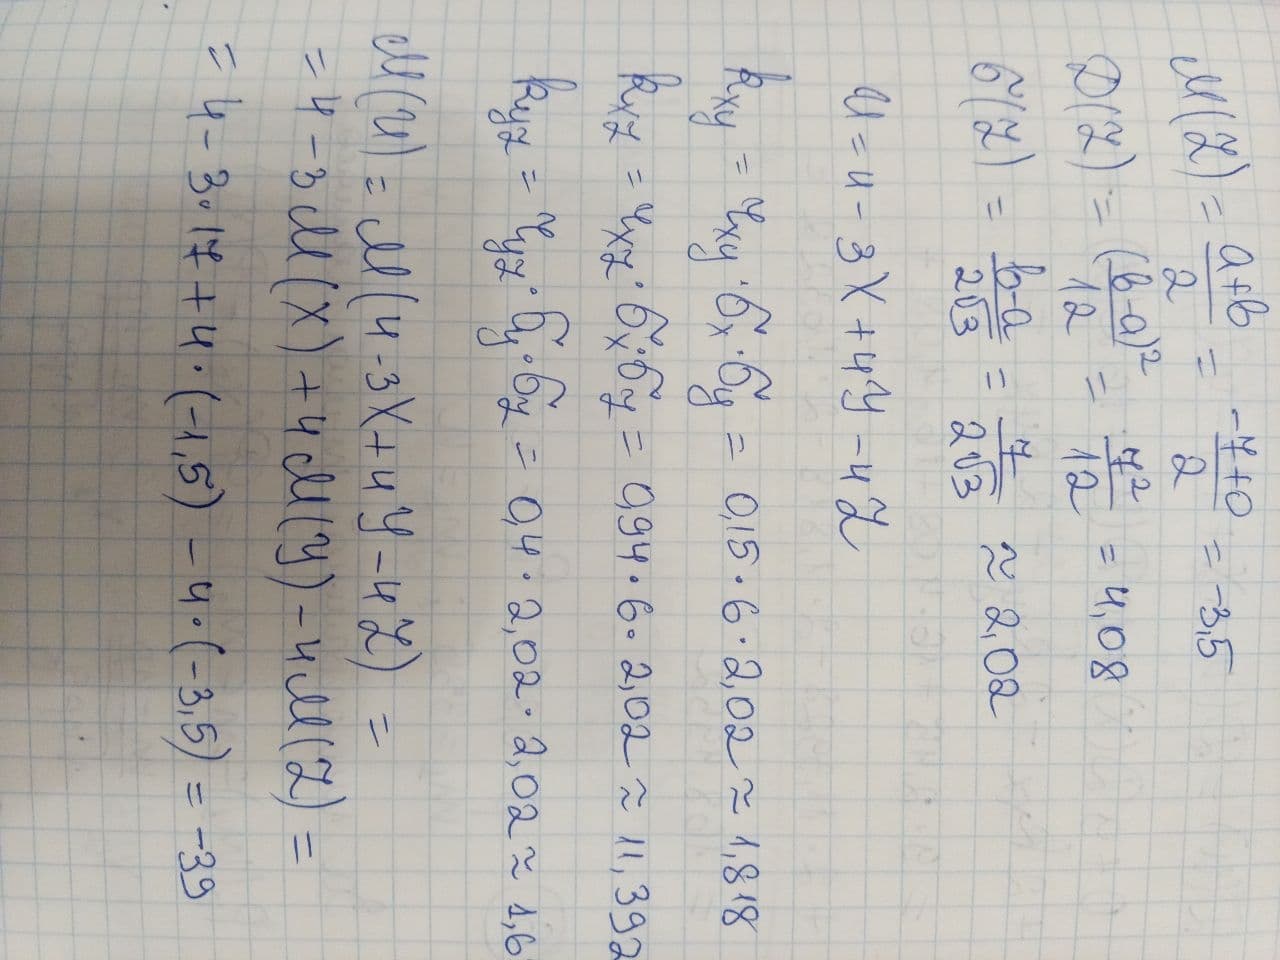 M(Z) = (a+b)/2 = (-7+0)/2 = -3,5
D(Z) = (b-a)²/12 = 7²/12 = 4,08
σ(Z) = (b-a)/(2√3) = 7/(2√3) ≈ 2,02
U = 4 - 3X + 4Y - 4Z
kxy = rxy · σx · σy = 0,15 · 6 · 2,02 ≈ 1,818
kxz = rxz · σx · σz = 0,94 · 6 · 2,02 ≈ 11,392
kyz = ryz · σy · σz = 0,4 · 2,02 · 2,02 ≈ 1,6
M(U) = M(4 - 3X + 4Y - 4Z) =
= 4 - 3M(X) + 4M(Y) - 4M(Z) =
= 4 - 3·17 + 4·(-1,5) - 4·(-3,5) = -39